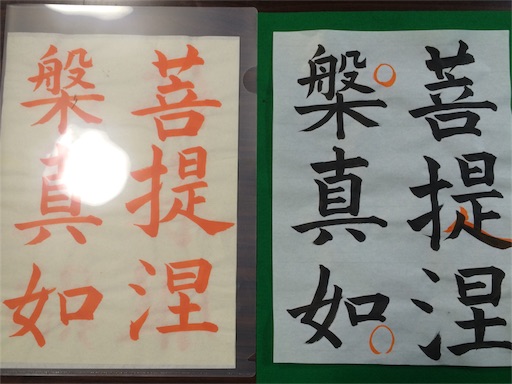 菩提涅
槃真如
菩提涅
槃真如